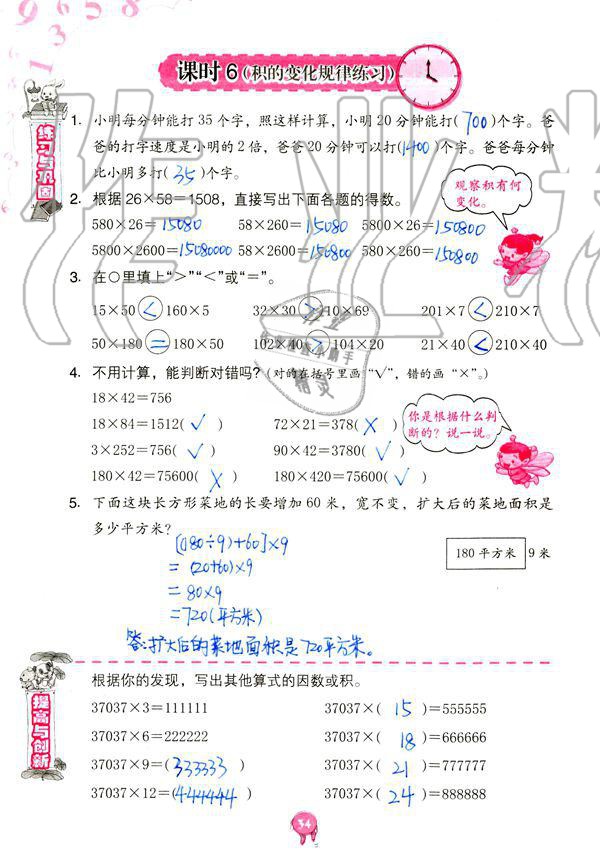 课时 6（积的变化规律练习）
练习与巩固
1. 小明每分钟能打 35 个字，照这样计算，小明 20 分钟能打( 700 )个字。爸
爸的打字速度是小明的 2 倍，爸爸 20 分钟可以打(1400 )个字。爸爸每分钟
比小明多打( 35 )个字。
观察积有何
变化。
2. 根据 26×58=1508，直接写出下面各题的得数。
580×26= 15080 58×260= 15080 5800×26= 150800
5800×2600=15080000 58×2600=150800 580×260=150800
3. 在○里填上“>”“<”或“=”。
15×50 < 160×5 32×30 > 10×69 201×7 < 210×7
50×180 = 180×50 102×40 > 104×20 21×40 < 210×40
4. 不用计算，能判断对错吗？(对的在括号里画“√”，错的画“×”。)
18×42=756
18×84=1512( √ ) 72×21=378( × )
3×252=756( √ ) 90×42=3780( √ )
180×42=75600( × ) 180×420=75600( √ )
你是根据什么判
断的？说一说。
5. 下面这块长方形菜地的长要增加 60 米，宽不变，扩大后的菜地面积是
多少平方米？
180 平方米 9 米
[(180÷9)+60]×9
= (20+60)×9
= 80×9
=720(平方米)
答:扩大后的菜地面积是720平方米。
提高与创新
根据你的发现，写出其他算式的因数或积。
37037×3=111111 37037×( 15 )=555555
37037×6=222222 37037×( 18 )=666666
37037×9=(333333 ) 37037×( 21 )=777777
37037×12=(444444 ) 37037×( 24 )=888888
34